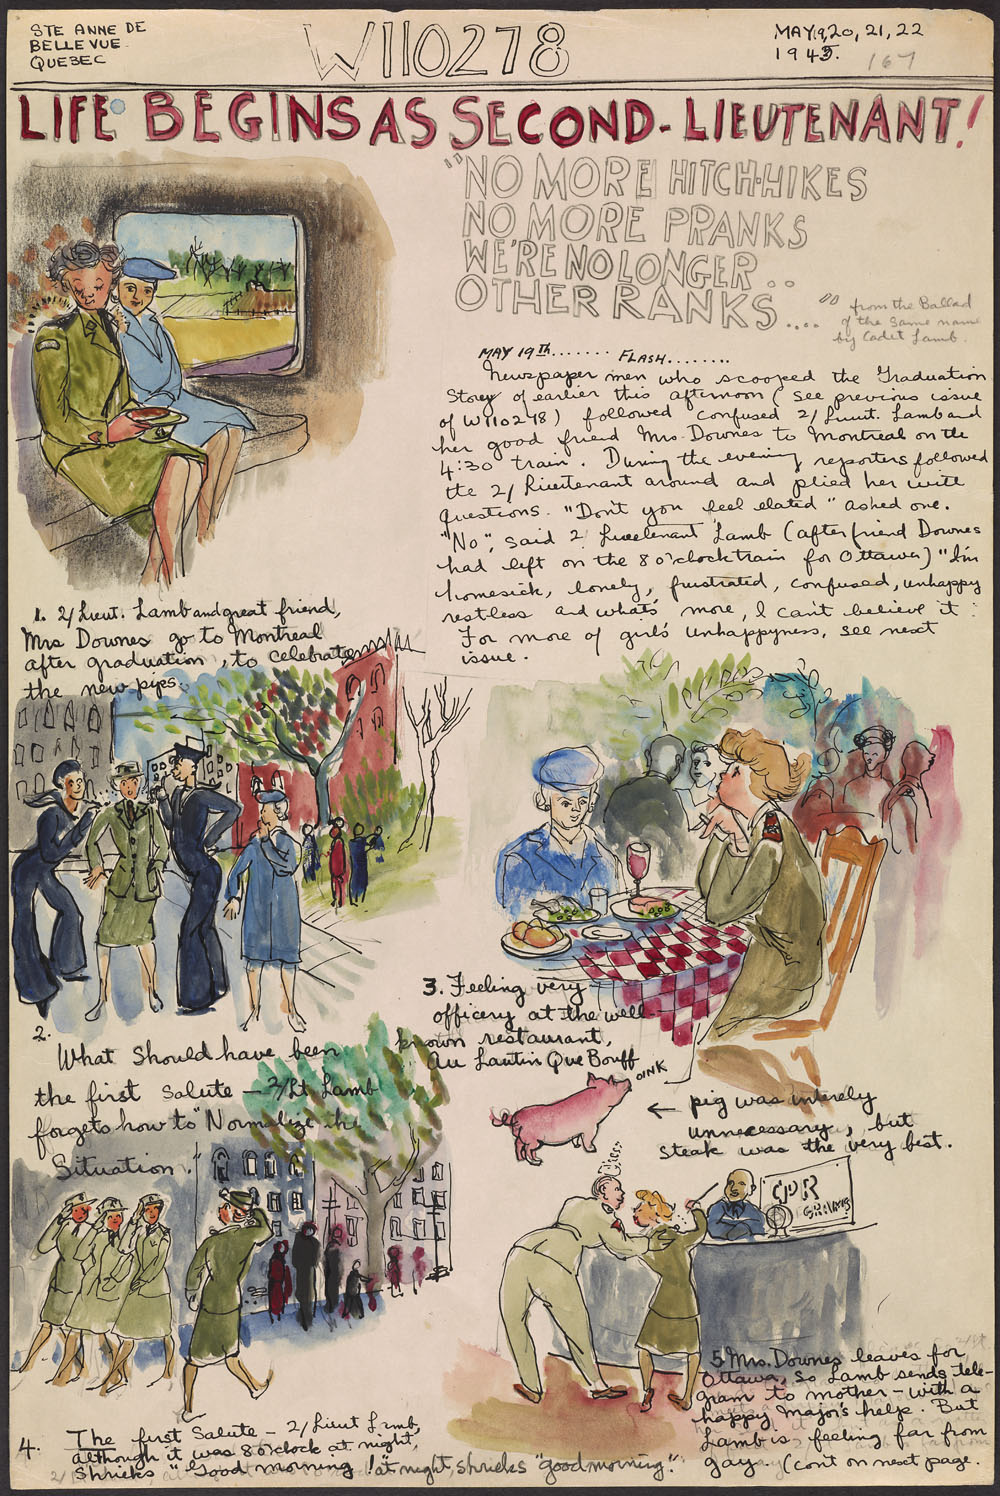 STE ANNE DE
BELLEVUE
QUEBEC
W110278
MAY 19, 20, 21, 22
1945.
167
LIFE BEGINS AS SECOND-LIEUTENANT!
"NO MORE HITCH-HIKES
NO MORE PRANKS
WE'RE NO LONGER ..
OTHER RANKS ...."
from the Ballad
of the same name
by Cadet Lamb.
MAY 19th....... FLASH........
Newspaper men who scooped the Graduation
Story of earlier this afternoon (see previous issue
of W110278) followed confused 2/Lieut. Lamb and
her good friend Mrs. Downes to Montreal on the
4:30 train. During the evening reporters followed
the 2/Lieutenant around and plied her with
questions. "Don't you feel elated" asked one.
"No", said 2/Lieutenant Lamb (after friend Downes
had left on the 8 o'clock train for Ottawa) "I'm
homesick, lonely, frustrated, confused, unhappy
restless and what's more, I can't believe it.
For more of girl's unhappyness, see next
issue.
1. 2/Lieut. Lamb and great friend,
Mrs Downes go to Montreal
after graduation, to celebrate
the new pips.
2.
What should have been
the first salute — 2/Lt. Lamb
forgets how to "Normalize the
Situation".
3. Feeling very
officery at the well-
known restaurant,
Au Lautin Que Bouff
OINK
← pig was entirely
unnecessary, but
steak was the very best.
CPR
4. The first Salute — 2/Lieut Lamb,
although it was 8 o'clock at night,
shrieks "Good morning!" at night, shrieks "good morning."
5 Mrs. Downes leaves for
Ottawa, so Lamb sends tele-
gram to mother — with a
happy Major's help. But
Lamb is feeling far from
gay. (cont on next page.